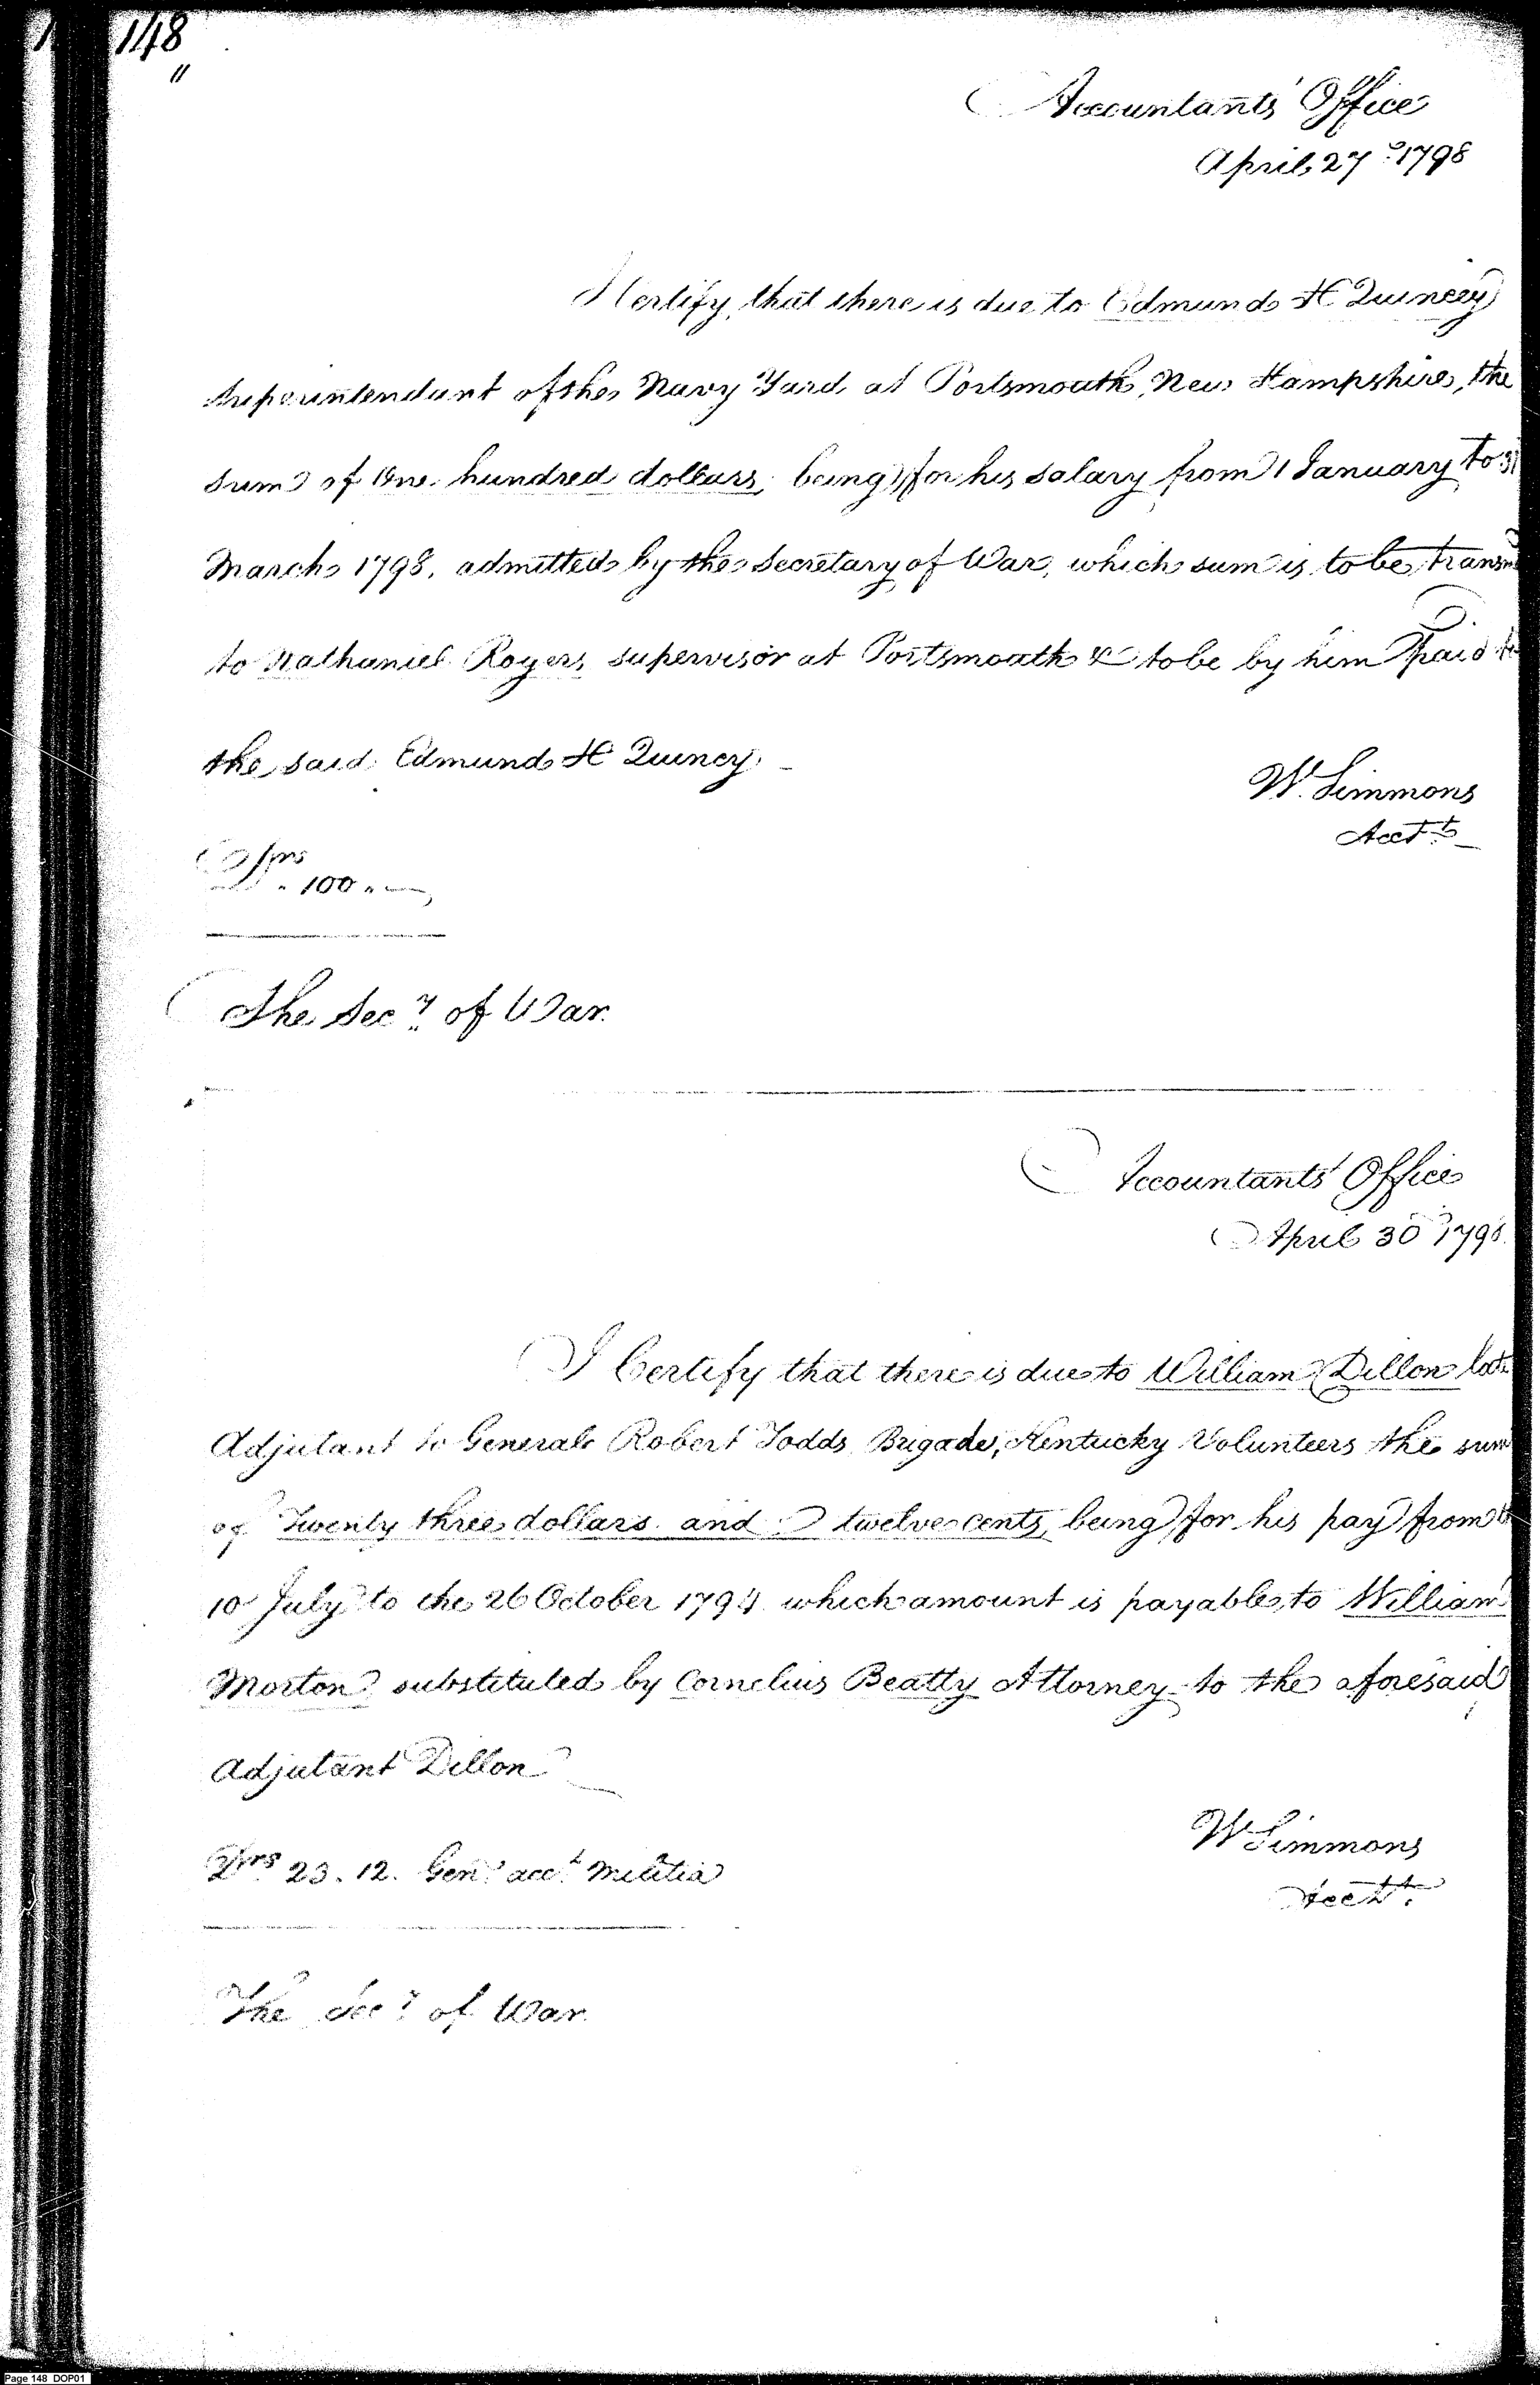 148
"
Accountants' Office
April 27th 1798
I Certify, that there is due to Edmund H Quincey
Superintendant of the Navy Yard at Portsmouth, New Hampshire, the
sum of One hundred dollars, being for his salary from 1 January to 31
March 1798, admitted by the Secretary of War, which sum is to be
to Nathaniel Rogers, supervisor at Portsmouth & to be by him paid to
the said Edmund H Quincy.
W. Simmons
Acctt
Drs
100
The Secy of War.
Accountants' Office
April 30 1798
I Certify that there is due to William Dillon late
Adjutant to General Robert Todds Brigade, Kentucky Volunteers the sum
of Twenty three dollars and twelve cents, being for his pay from
10 July to the 26 October 1794 which amount is payable to William
Morton substituted by Cornelius Beatty Attorney to the aforesaid
Adjutant Dillon
W Simmons
Acctt.
Drs 23.12. Genl acct. Militia
The Secy of War.
Page 148 DOP01